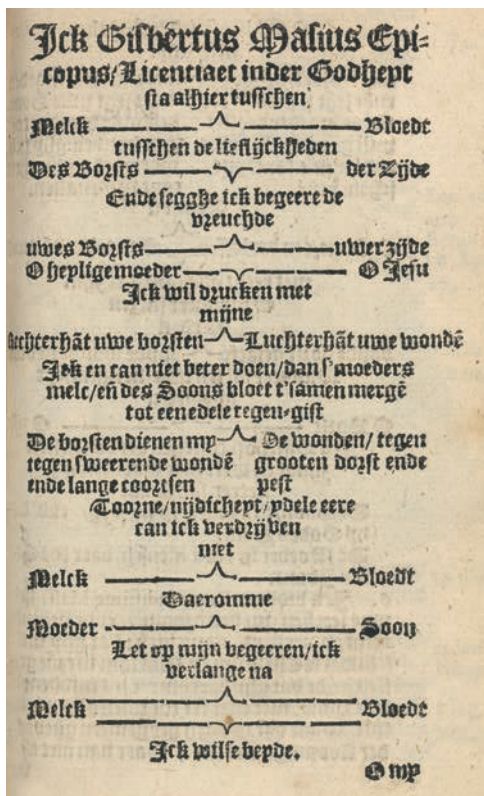 Ick Gisbertus Masius Epi=
copus/Licentiaet inder Godheyt
sta alhier tusschen
Melck Bloedt
tusschen de lieflijckheden
Des Borsts der Zijde
Ende segghe ick begeere de
vreuchde
uwes Borsts uwer zijde
O heylige moeder O Jesu
Ick wil drucken met
mijne
Luchterhãt uwe wondẽ
Ick en can niet beter doen/dan s'moeders
melc/eñ des Soons bloet t'samen mergẽ
tot een edele regen-gift
De borsten dienen my De wonden/ tegen
tegen sweerende wondẽ grooten dorst ende
ende lange coortsen pest
Toorne/nijdicheyt/ydele eere
can ick verdrijven
met
Melck Bloedt
Daeromme
Moeder Soon
Let op mijn begeeren/ick
verlange na
Melck Bloedt
Ick wilse beyde.
O my